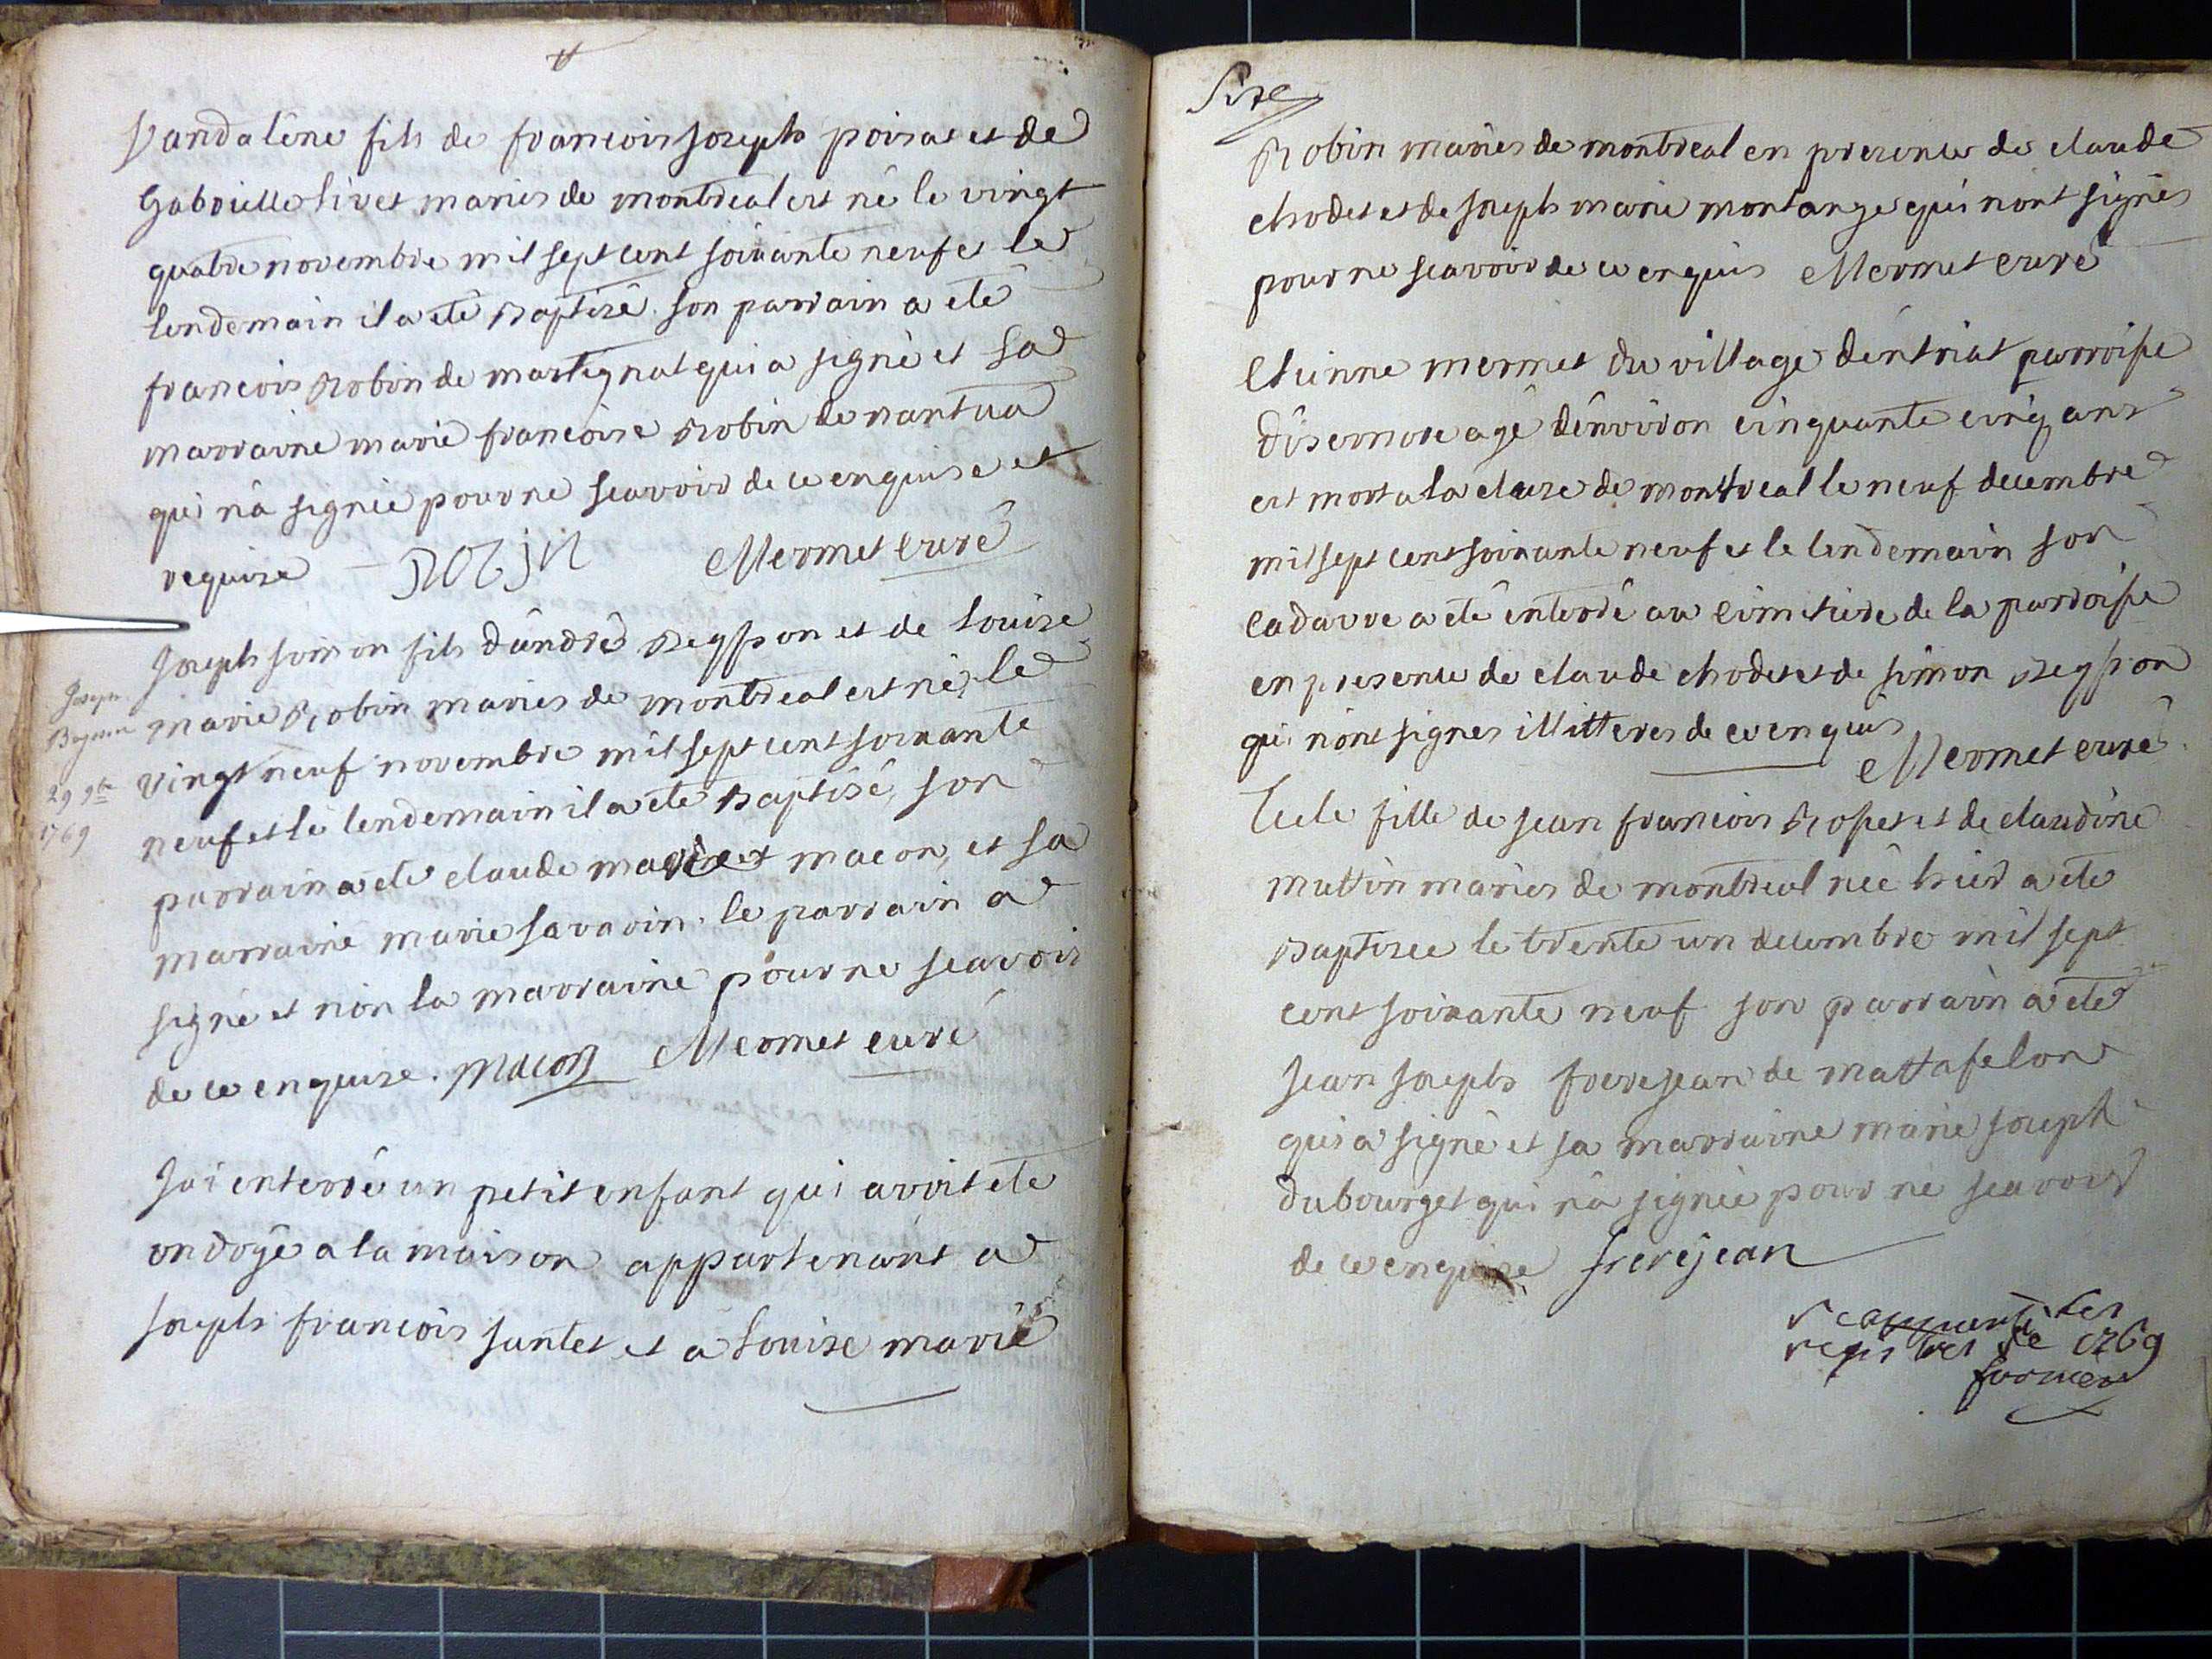 Vandalêne fils de francois Joseph poisat et de
Gabrielle livet mariés de montreal est né le vingt
quatre novembre mil sept cent soixante neuf et le
lendemain il a eté Baptisé son parrain a eté
francois Robin de martignat qui a signé et sa
marraine marie francoise Robin de nantua
qui n'a signée pour ne scavoir de ce enquise et
requise Robin Mermet curé
Joseph simon fils d'andré Beysson et de Louise
Joseph
marie Robin mariés de montreal est né le
vingt neuf novembre mil sept cent soixante
29 9bre
neuf et le lendemain il a eté Baptisé, son
1769
parrain a eté claude macon, et sa
marraine marie savarin. le parrain a
signé et non la marraine pour ne scavoir
de ce enquise. macon Mermet curé
J'ai enterré un petit enfant qui avoit eté
ondoyé a la maison appartenant a
Joseph francois juntet et a Louise marie
Robin mariés de montreal en presence de claude
chodet et de Joseph marie montange qui n'ont signés
pour ne scavoir de ce enquis Mermet curé
Etienne mermet du village d'entriat parroisse
d'isernore agé d'environ cinquante cinq ans
est mort a la cluse de montreal le neuf decembre
mil sept cent soixante neuf et le lendemain son
cadavre a eté enterré au cimetiere de la parroisse
en presence de claude chodet et de simon Beysson
qui n'ont signés illitteres de ce enquis
Mermet curé
fille de jean francois Rosset et de claudine
muttin mariés de montreal née hier a eté
Baptisee le trente un decembre mil sept
cent soixante neuf son parrain a eté
jean Joseph frerejean de mattafelon
qui a signé et sa marraine marie Joseph
dubourget qui n'a signée pour ne scavoir
de ce enquise frerejean
les
registres de 1769